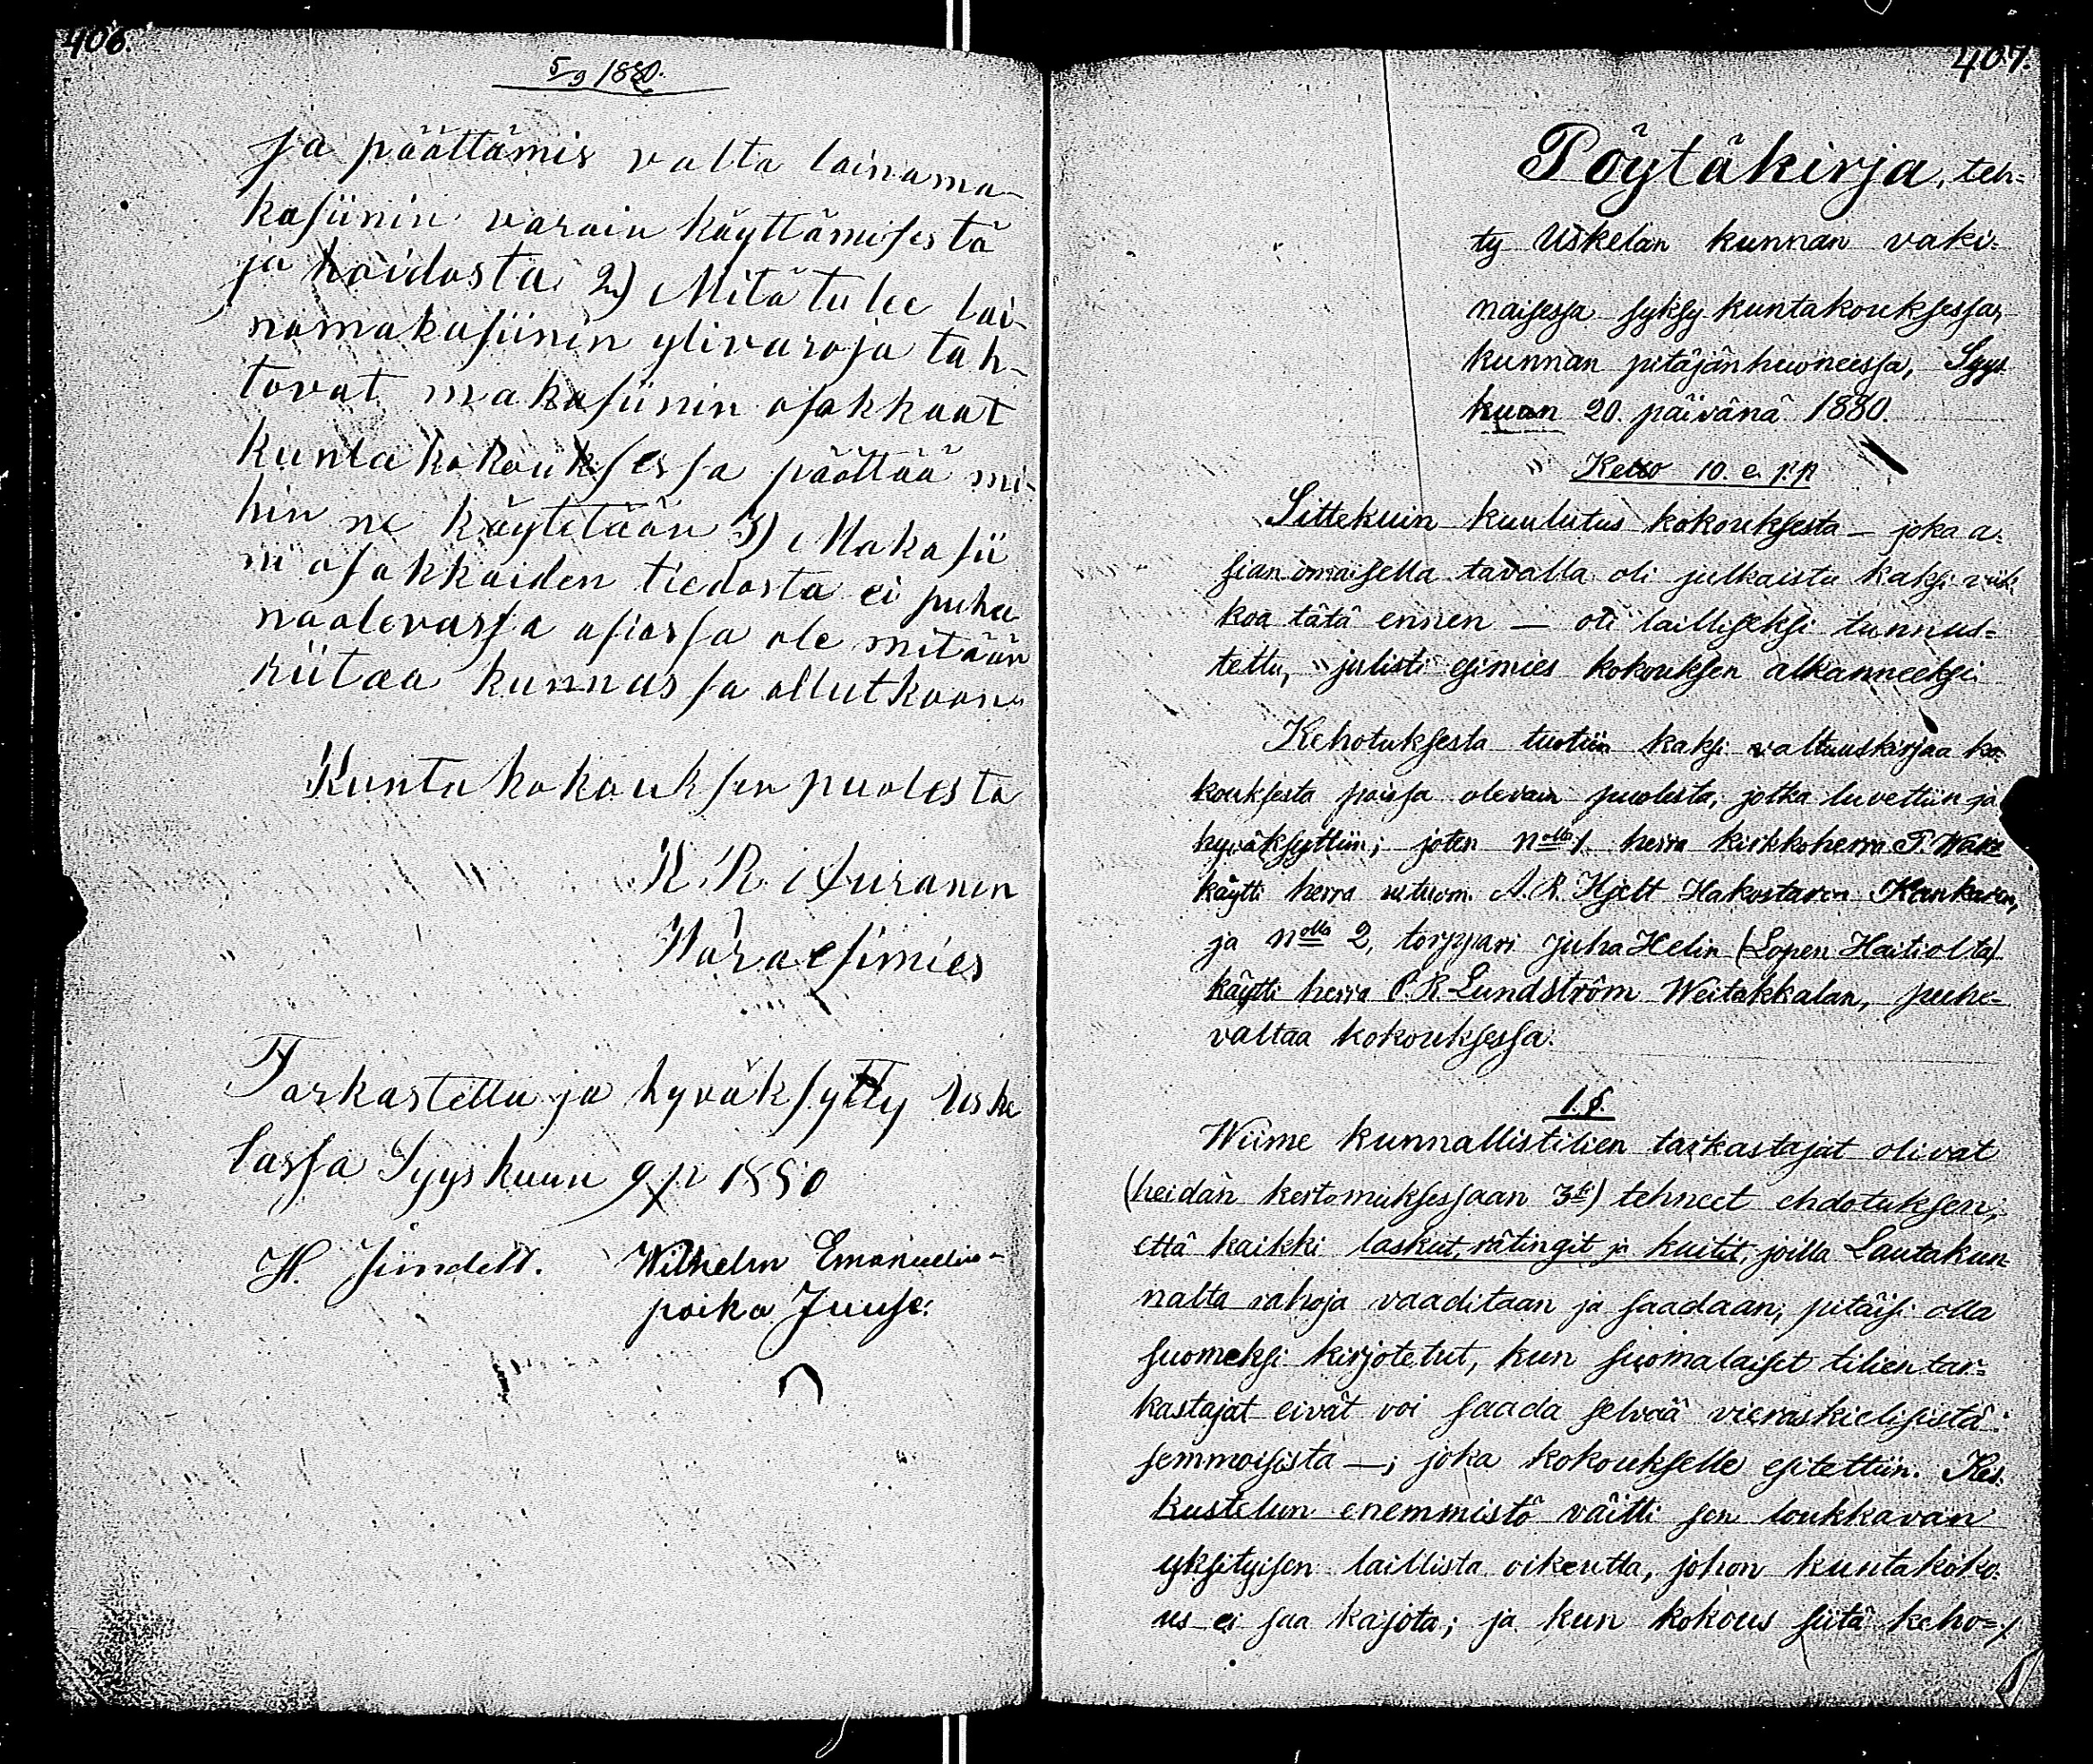 406.
5/9 1880.
ja päättämis valta lainama-
kasiinin varain käyttämisestä
ja hoidosta 2) Mitä tulee lai-
namakasiinin ylivaroja tah-
tovat makasiinin osakkaat
kuntakokouksessa päättää mi-
hin ne käytetään 3) Makasii
ni osakkaiden tiedosta ei puhee
naolevassa asiassa ole mitään
riitaa kunnassa ollutkaan
Kuntakokouksen puolesta
K. R. Auranen
Waraesimies
Tarkastettu ja hyväksytty Uske
lassa Syyskuun 9 p 1880
H. Jündelt. Wilhelm Emanuelin-
poika Juuse.
407.
Pöytäkirja, teh=
ty Uskelan kunnan vaki-
naisessa syksy kuntakouksessa,
kunnan pitäjänhuoneessa, Syys
kuun 20. päivänä 1880.
Kello 10. e. p.p
Sittekuin kuulutus kokouksesta — joka a-
sian omaisella tavalla oli julkaistu kaksi viik-
koa tätä ennen — oli lailliseksi tunnus=
tettu, julisti esimies kokouksen alkanneeksi
Kehotuksesta tuotiin kaksi valtuuskirjaa ko-
kouksesta poissa olevain puolesta, jotka luvettiin ja
hyväksyttiin; joten Nolla 1. herra kirkkoherra F. War
käytti herra A. R. Hjelt Hakostaron Kankaren,
ja Nolla 2, torppari Juha Helin (Lopen Haitiolta)
käytti herra P. R. Lundström Weitakkalan, puhe-
valtaa kokouksessa.
1. §.
Wiime kunnallistilien tarkastajat olivat
(heidän kertomuksessaan 3k) tehneet ehdotuksen,
että kaikki laskut, rätingit ja kuitit, joilla Lautakun-
nalta rahoja vaaditaan ja saadaan, pitäisi olla
suomeksi kirjotetut, kun suomalaiset tilien tar=
kastajat eivät voi saada selvää vieraskielisistä
semmoisista —; joka kokoukselle esitettiin. Kes-
kustelun enemmistö väitti sen loukkavan
yksityisen laillista oikeutta, johon kuntakoko-
us ei saa kajota; ja kun kokous siitä keho=